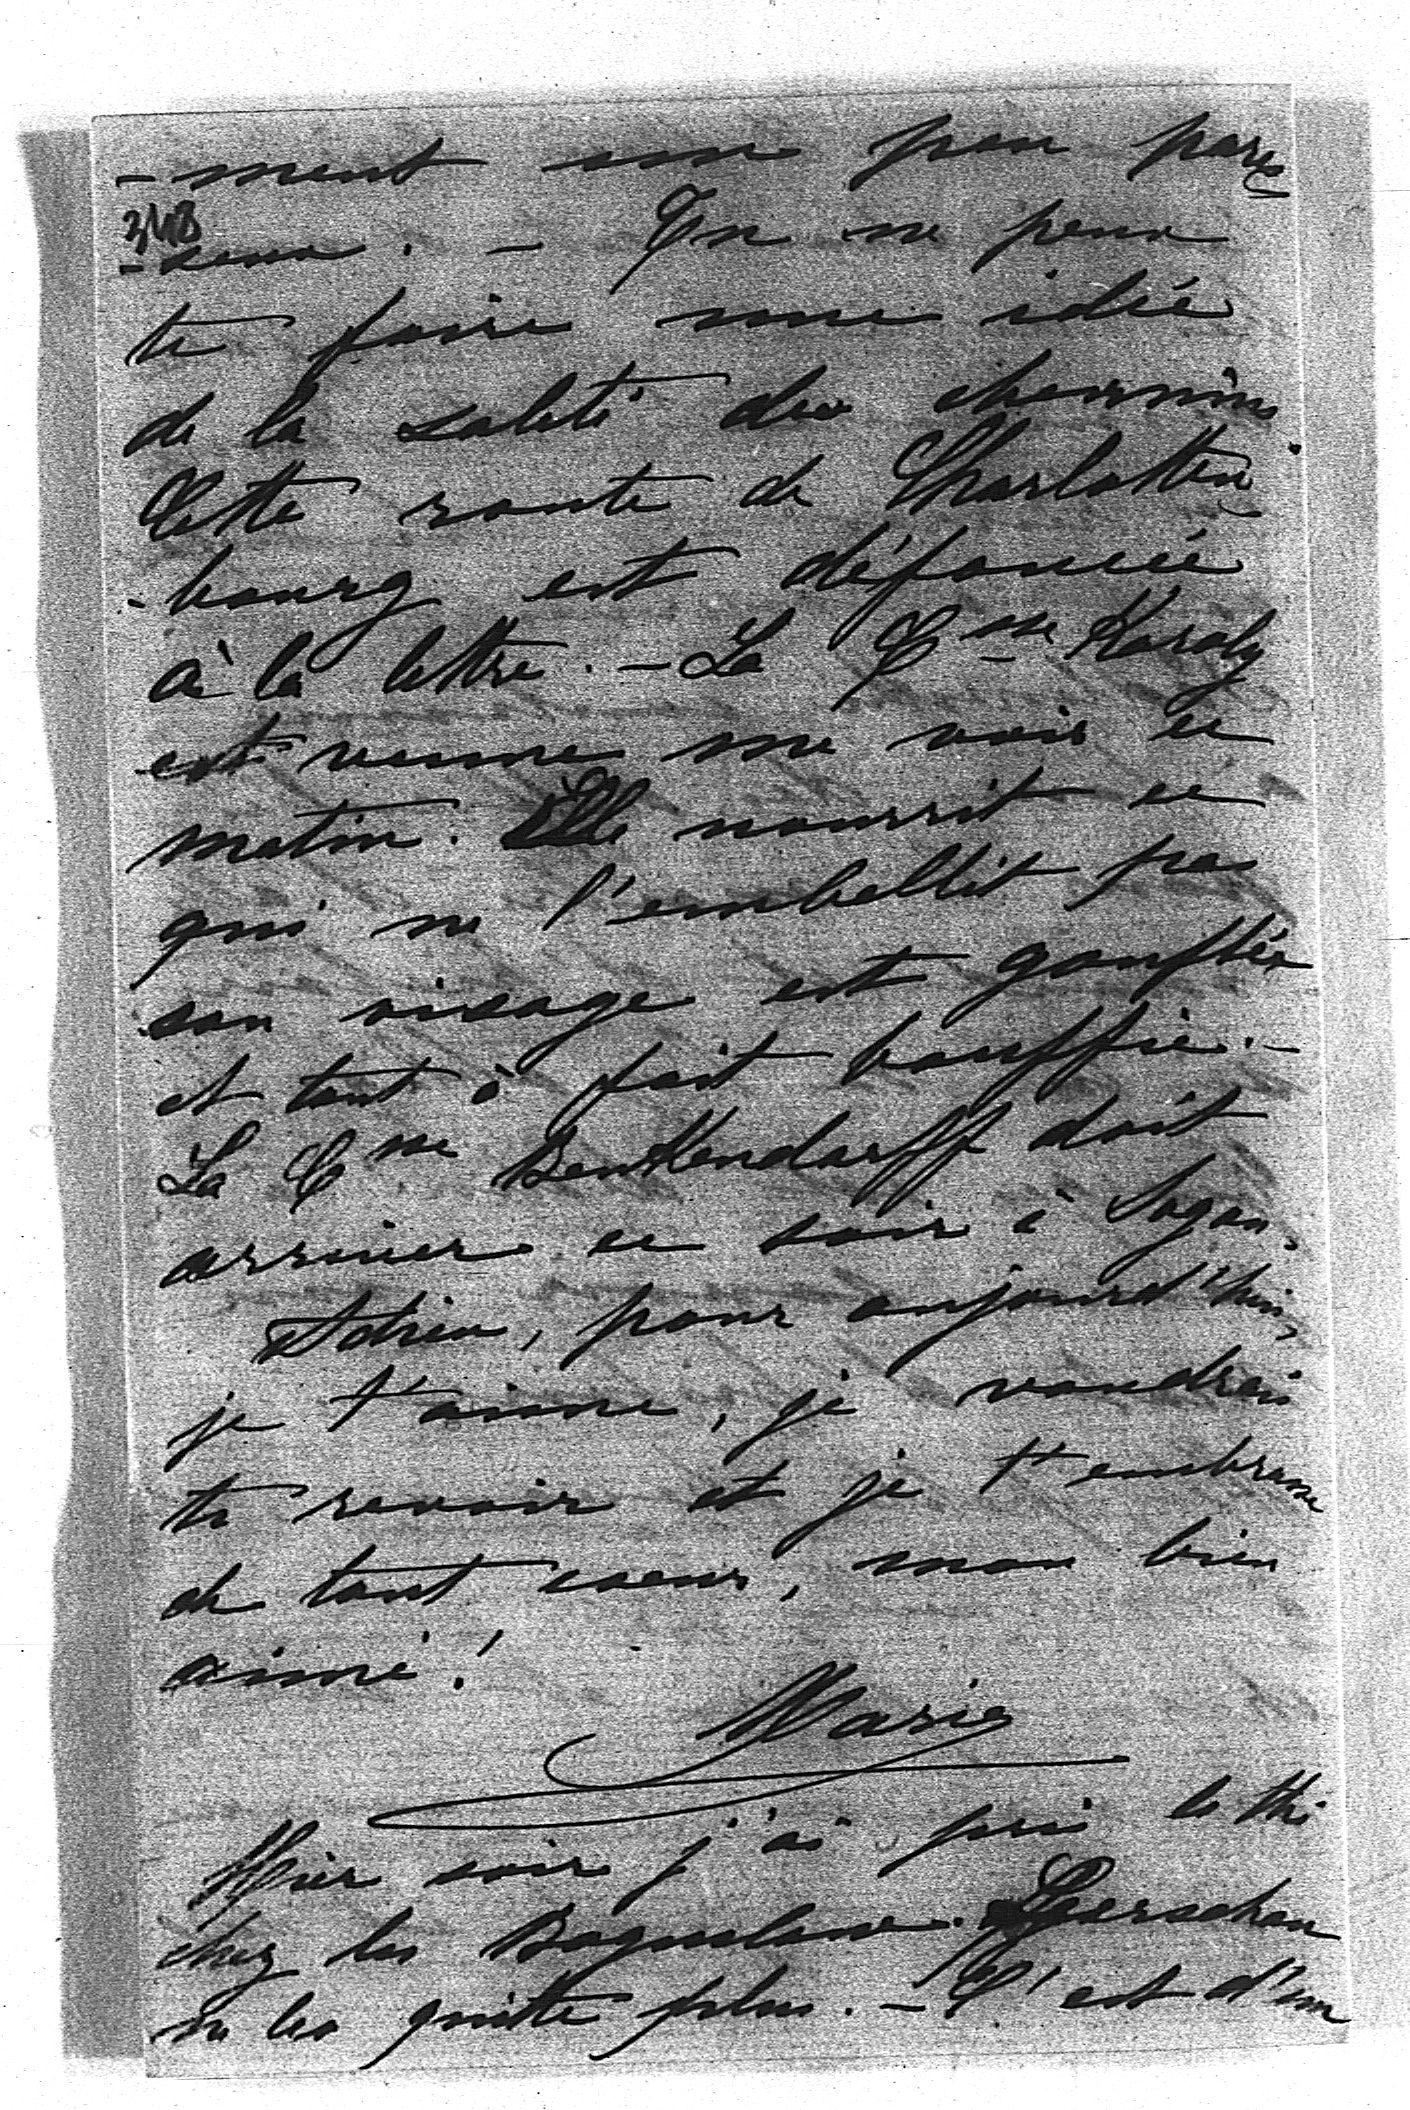 -ment un peu pares
34B
-seux. - Tu ne peux
te faire une idée
de la saleté des chemins.
Cette route de Charlotten
-bourg est défoncée
à la lettre. - La Csse Karoly
est venue me voir ce
matin. Elle nourrit ce
qui ne l'embellit pas
son visage est gonflée
et tout à fait bouffie. -
La Csse Benkendorff doit
arriver ce soir à Sagan,
Adieu, pour aujourd'hui,
je t'aime, je voudrais
te revoir et je t'embrasse
de tout coeur, mon bien
aimé!
Marie
Hier soir j'ai pris le thé
chez les Boguslaw.
ne les quitte plus. - C'est d'un